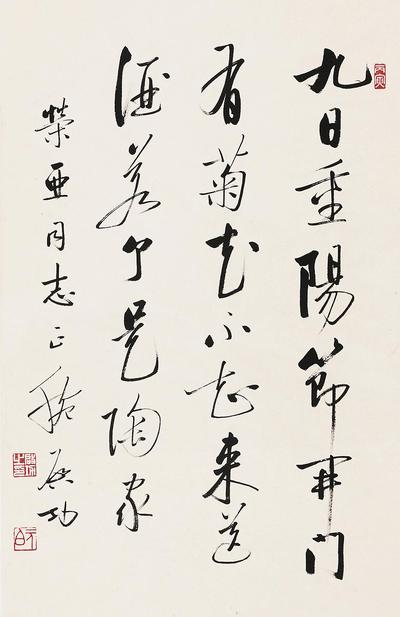 九日重陽節開門
有菊花不知來送
酒若个是陶家
榮亞同志正 啟功